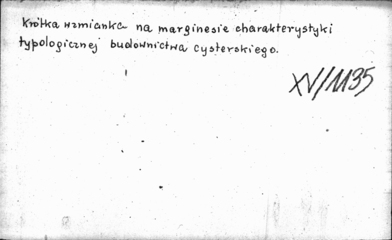 Krótka wzmianka na marginesie charakterystyki
typologicznej budownictwa cysterskiego.
XV/1135